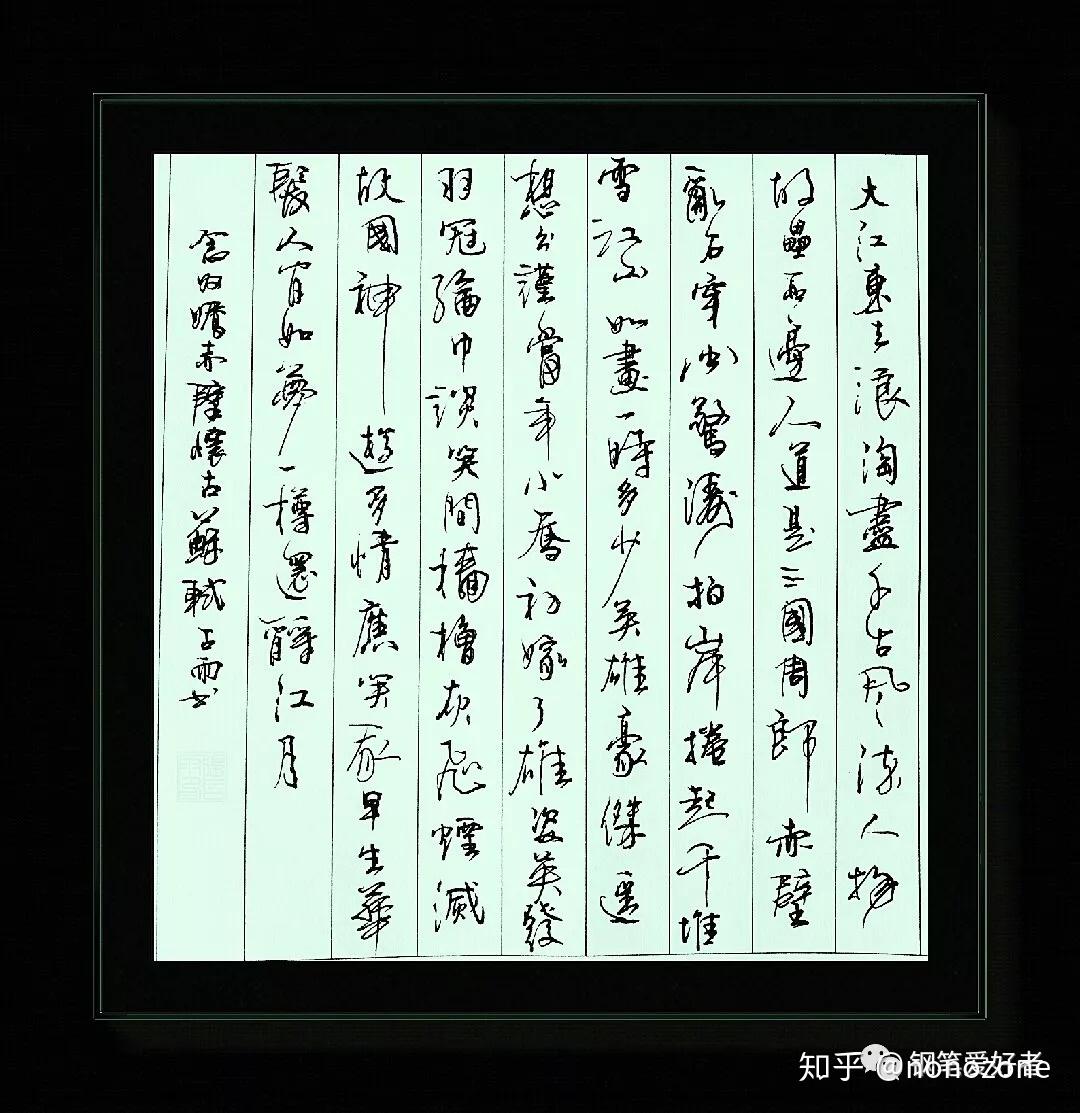 大江東去浪淘盡千古風流人物
故壘西邊人道是三國周郎赤壁
亂石穿空驚濤拍岸捲起千堆
雪江山如畫一時多少英雄豪傑遙
想公謹當年小喬初嫁了雄姿英發
羽冠綸巾談笑間檣櫓灰飛煙滅
故國神遊多情應笑我早生華
髮人間如夢一樽還酹江月
念奴嬌赤壁懷古蘇軾子雨书
知乎 @nonozone
钢笔爱好者